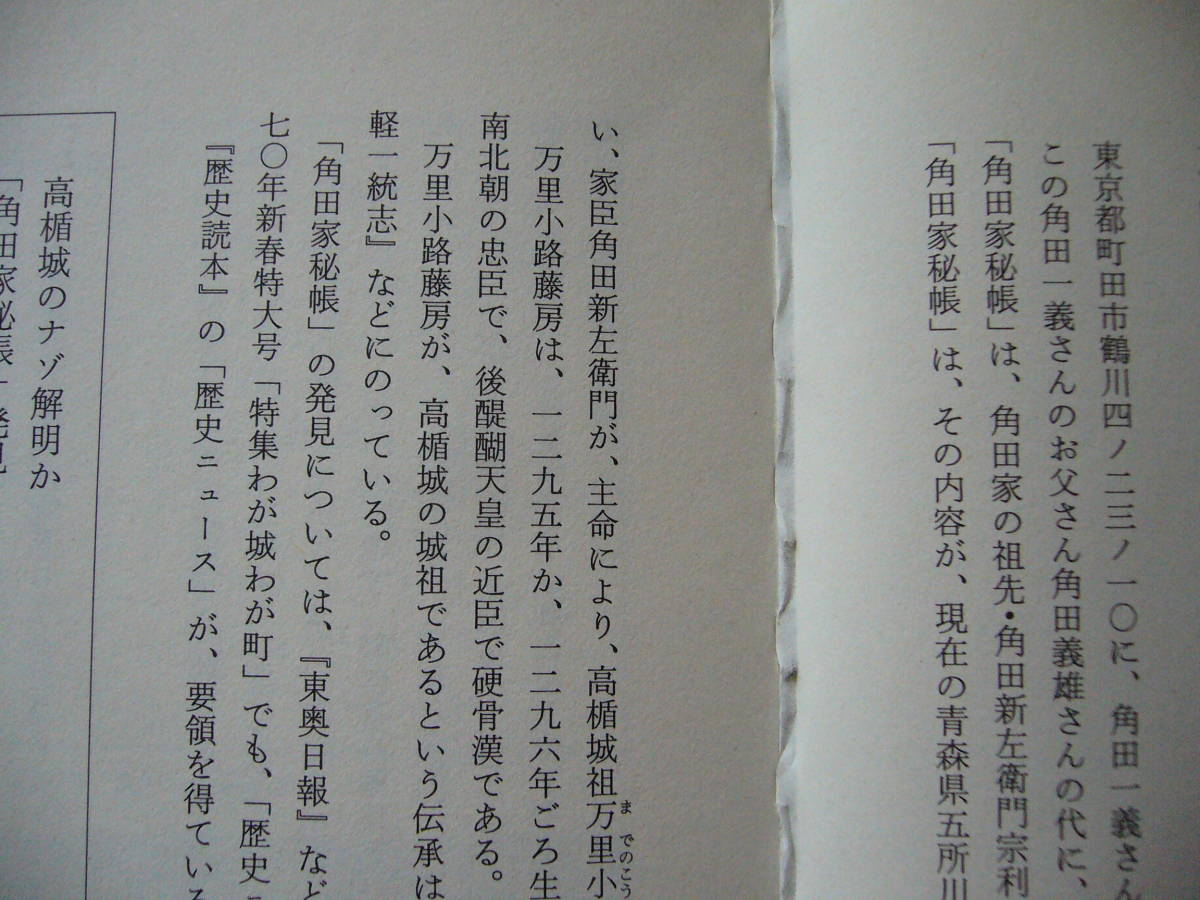 東京都町田市鶴川四ノ二三ノ一〇に、角田一義さん
この角田一義さんのお父さん角田義雄さんの代に、
「角田家秘帳」は、角田家の祖先・角田新左衛門宗利
「角田家秘帳」は、その内容が、現在の青森県五所川
い、家臣角田新左衛門が、主命により、高楯城祖万里小
までのこう
万里小路藤房は、一二九五年か、一二九六年ごろ生
南北朝の忠臣で、後醍醐天皇の近臣で硬骨漢である。
万里小路藤房が、高楯城の城祖であるという伝承は
軽一統志』などにのっている。
「角田家秘帳」の発見については、『東奥日報』など
七〇年新春特大号「特集わが城わが町」でも、「歴史
『歴史読本』の「歴史ニュース」が、要領を得ている
高楯城のナゾ解明か
「角田家秘帳」発見